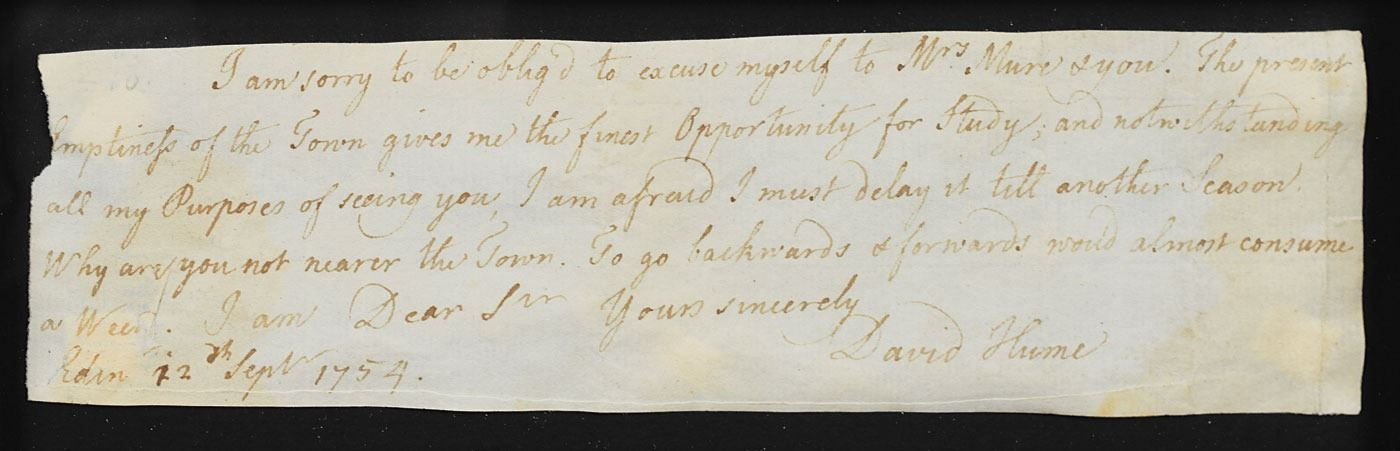 I am sorry to be oblig'd to excuse myself to Mrs Mure & you. The present
Emptiness of the Town gives me the finest Opportunity for Study; and notwithstanding
all my Purposes of seeing you, I am afraid I must delay it till another Season.
Why are you not nearer the Town. To go backwards & forwards wou'd almost consume
a Week. I am Dear Sir Yours sincerely
David Hume
Edinr 12th Septr 1754.